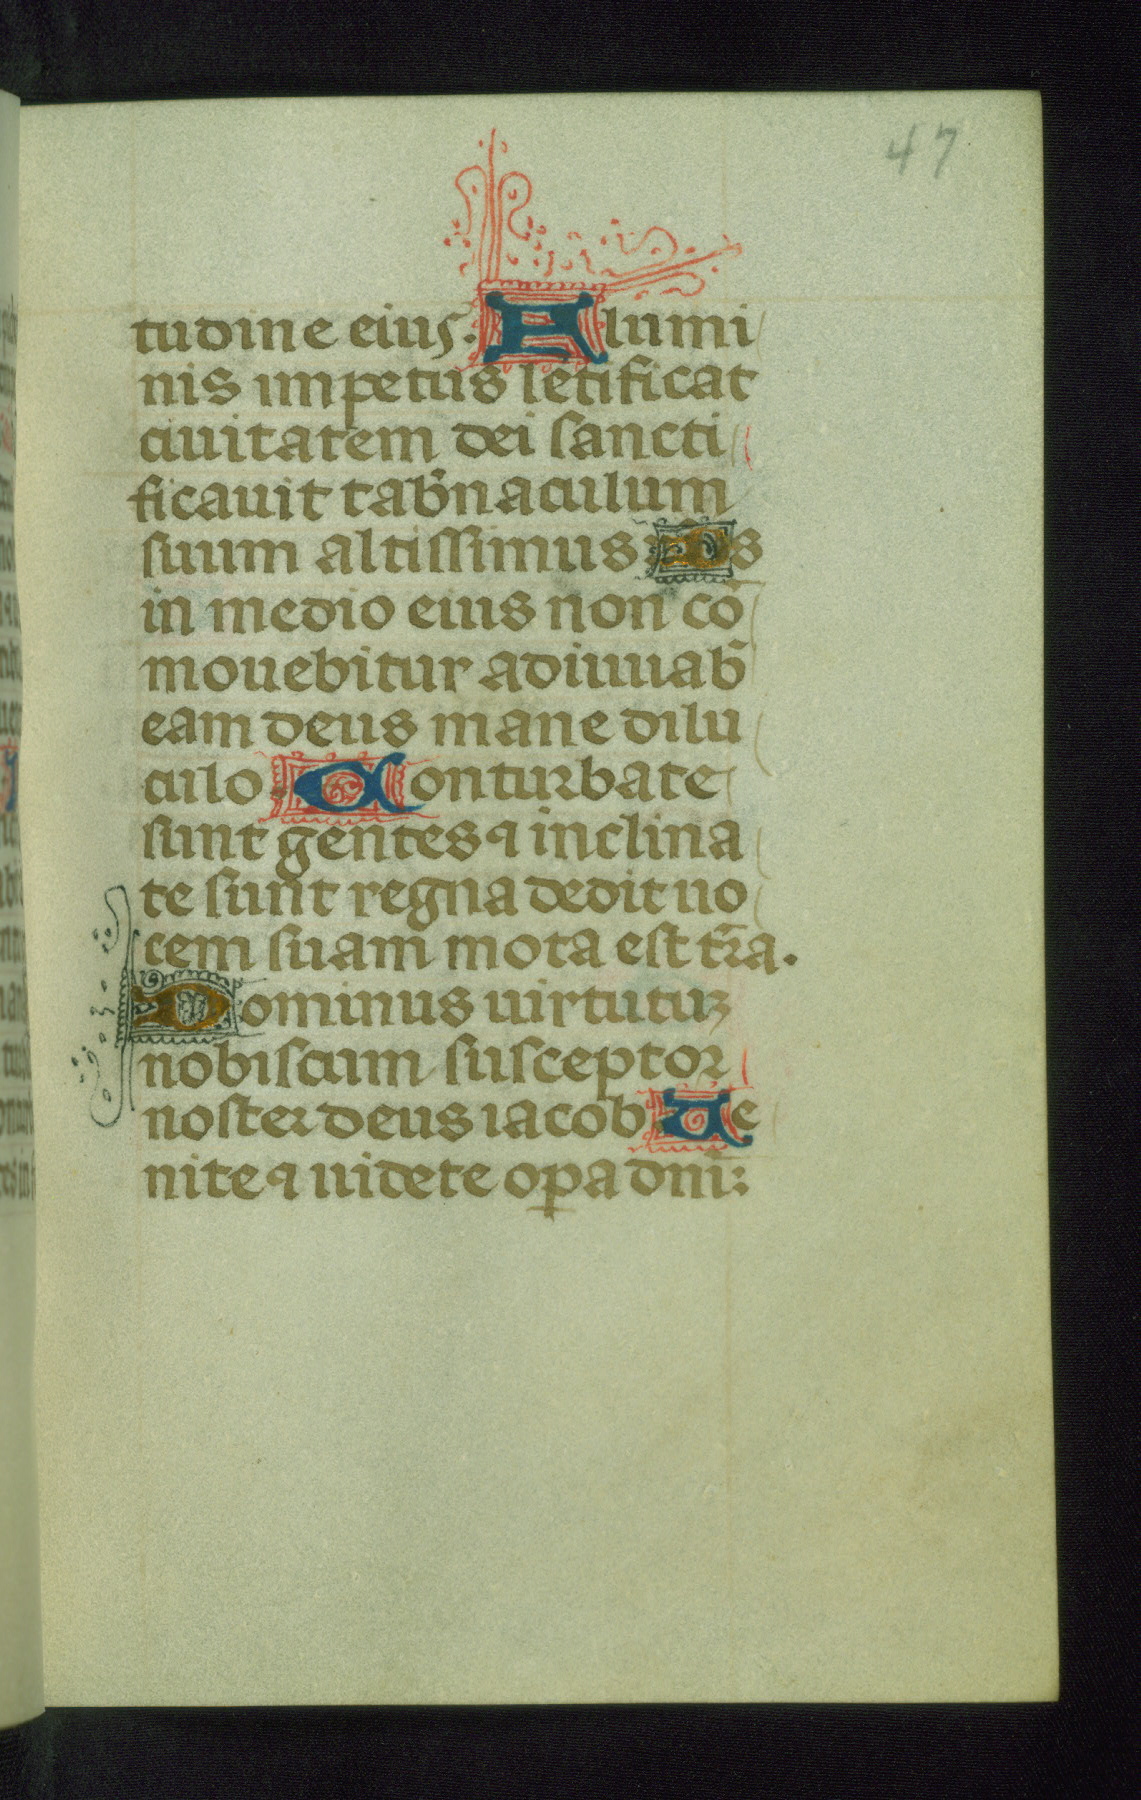 47
tudine eius. Flumi
nis impetus letificat
ciuitatem dei sancti
ficauit tab̄naculum
suum altissimus Ds
in medio eius non cō
mouebitur adiuuab̄
eam deus mane dilu
culo Conturbate
sunt gentes ⁊ inclina
te sunt regna dedit uo
cem suam mota est t̄ra.
Dominus uirtutuꝫ
nobiscum susceptor
noster deus iacob Ue
nite ⁊ uidete oꝑa dn̄i: